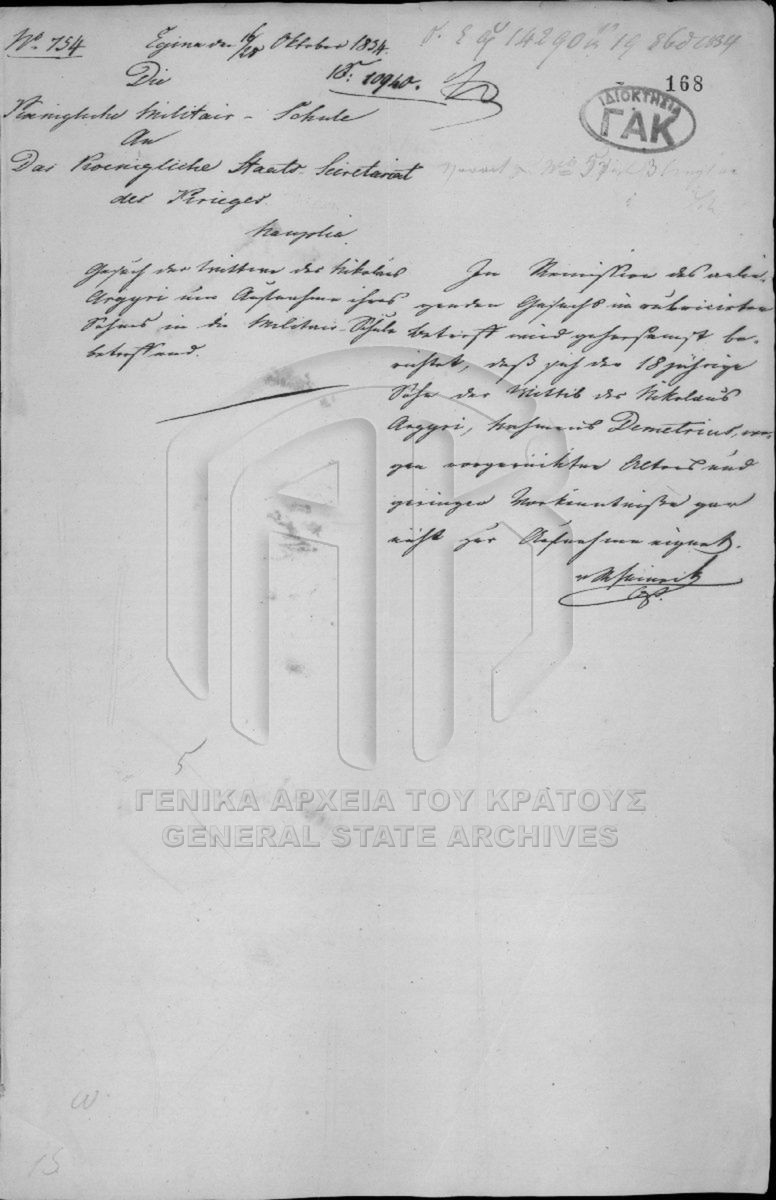 No. 754 Egina den 16/28 Oktober 1834.
14290 19 1834
Die No: 10940.
168
ΙΔΙΟΚΤΗΣΙΑ
ΓΑΚ
Königliche Militair-Schule
An
Das Koenigliche Staats-Secretariat
des Krieges.
Nauplia.
Gesuch der Wittwe des Nikolaus
Argyri um Aufnahme ihres
Sohnes in die Militair-Schule
betreffend.
In Remission des anlie-
genden Gesuchs im rubricirten
Betreff wird gehorsamst be-
richtet, daß sich der 18 jährige
Sohn der Wittib des Nikolaus
Argyri, Nahmens Demetrius, we-
gen vorgerückten Alters und
geringen Vorkenntniße gar
nicht zur Aufnahme eignet.
5
ΓΕΝΙΚΑ ΑΡΧΕΙΑ ΤΟΥ ΚΡΑΤΟΥΣ
GENERAL STATE ARCHIVES
15